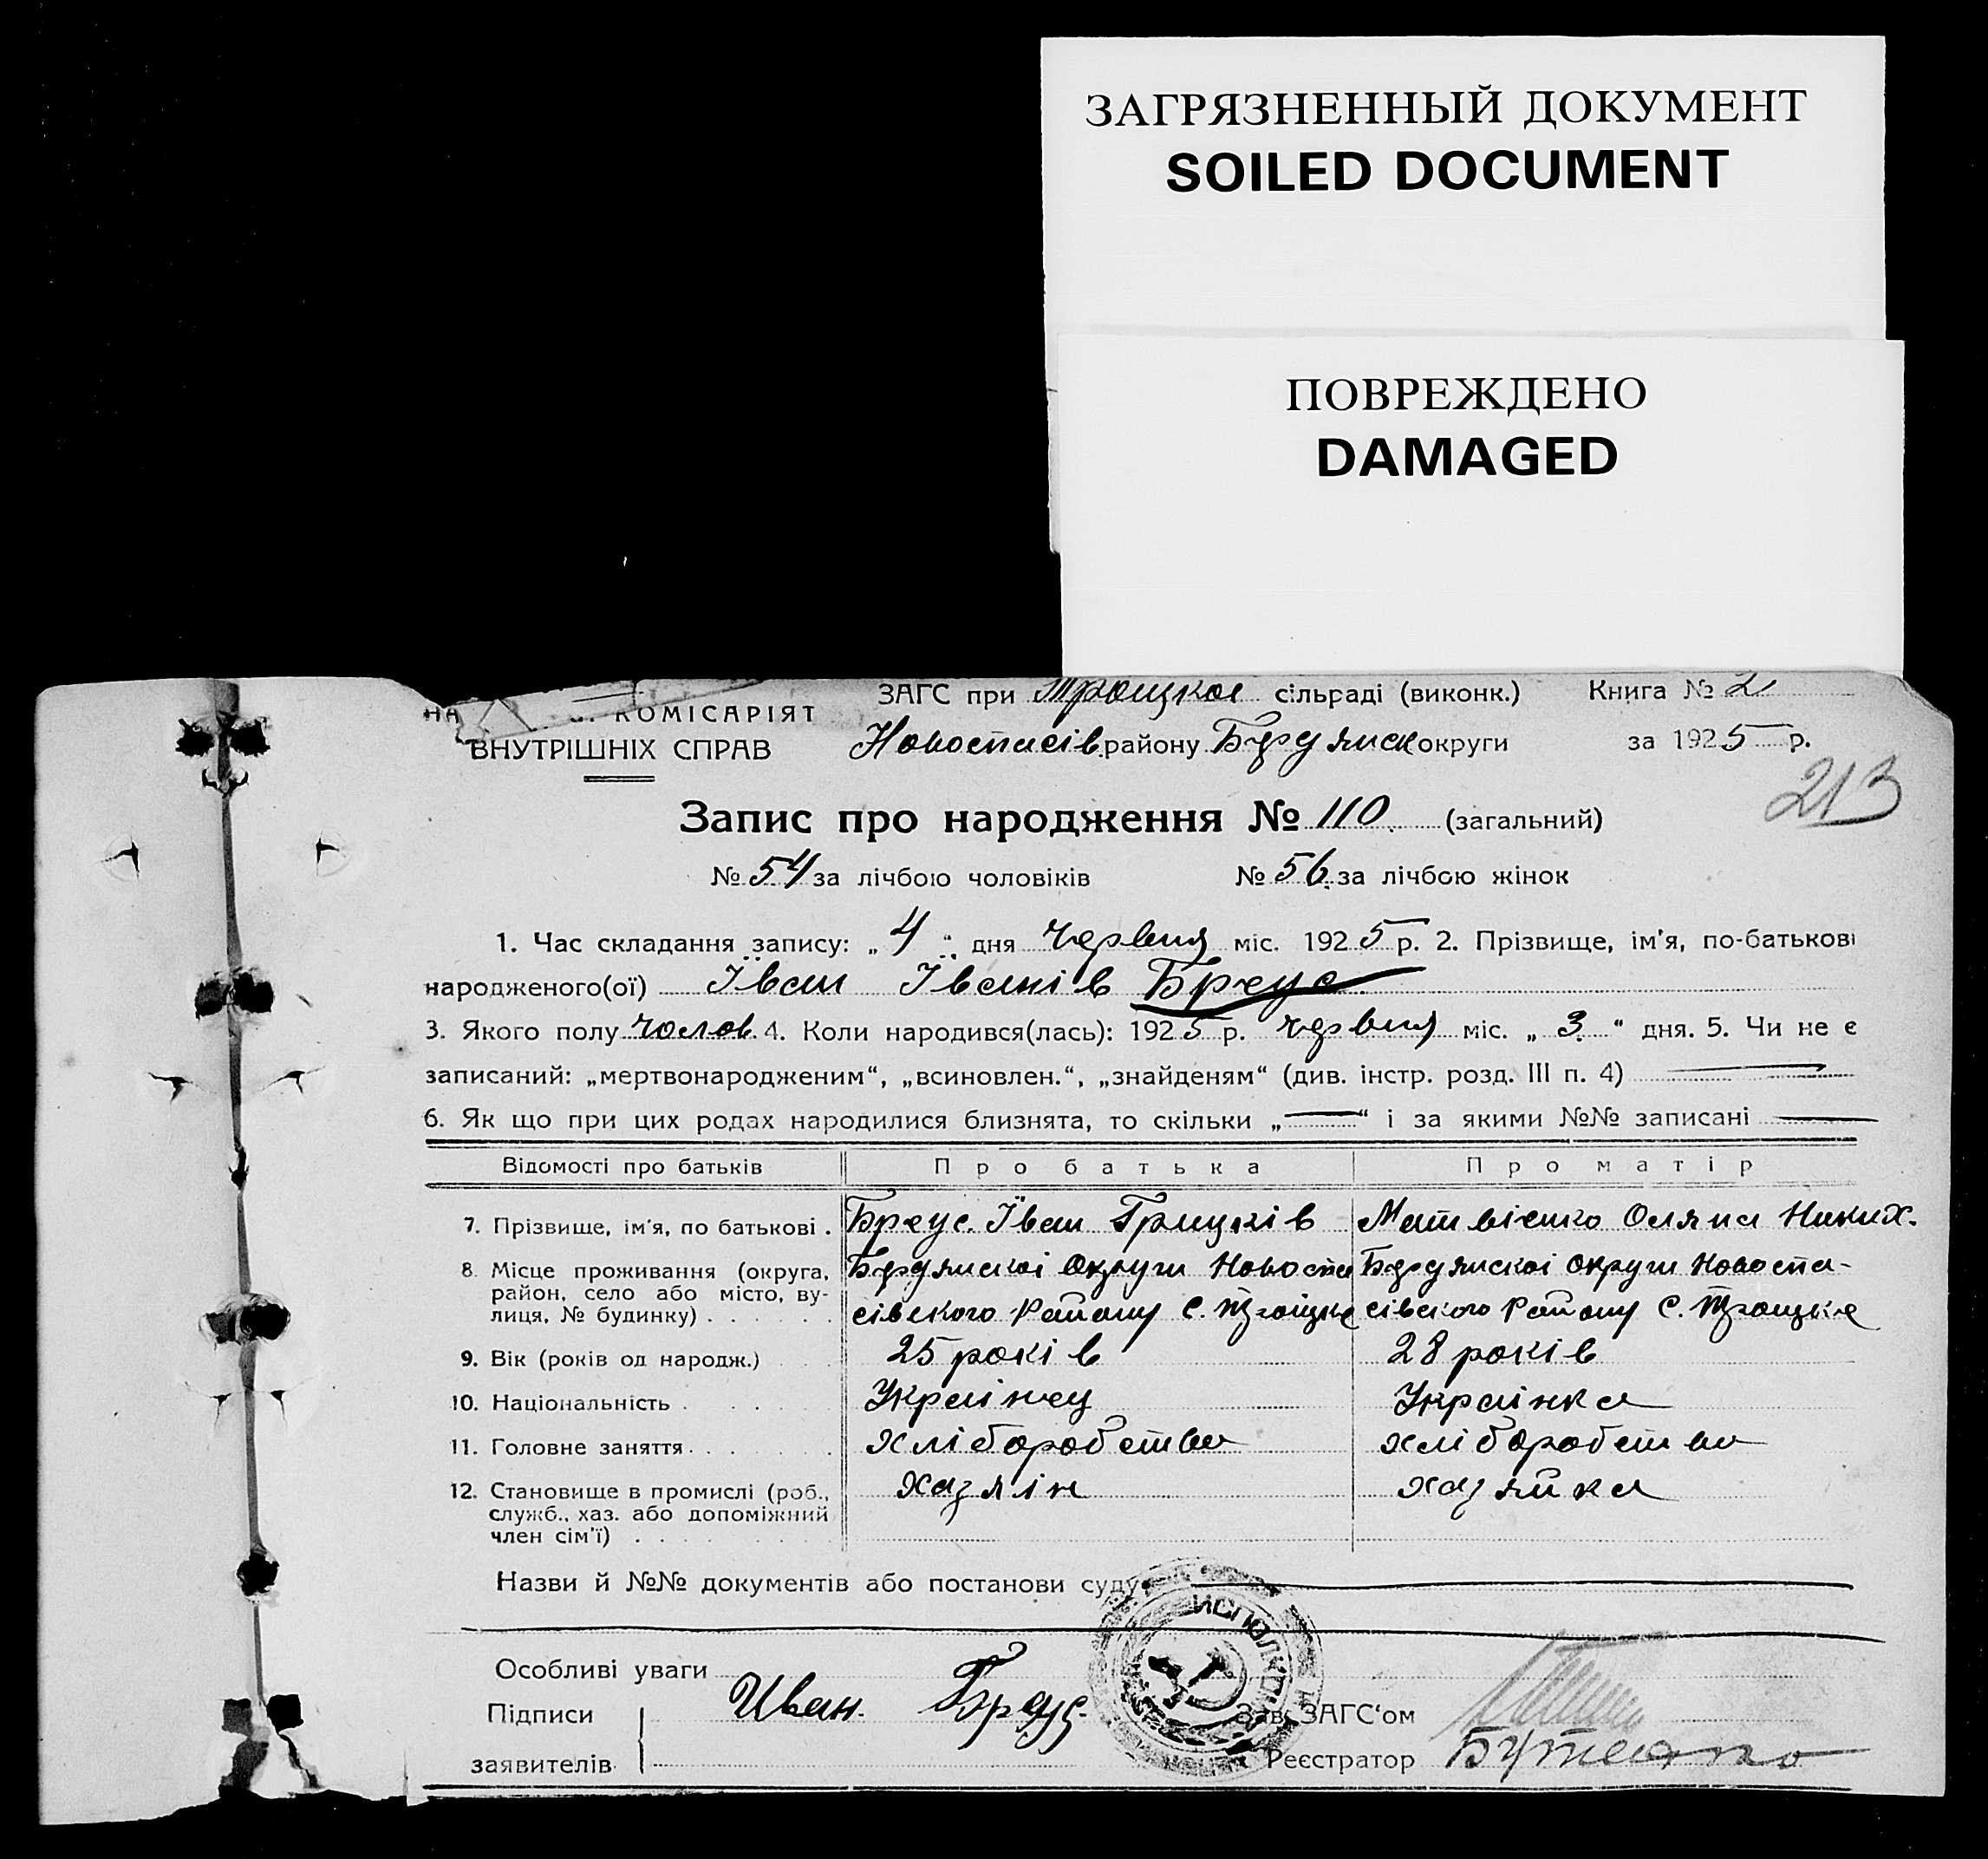 ЗАГРЯЗНЕННЫЙ ДОКУМЕНТ
SOILED DOCUMENT
ПОВРЕЖДЕНО
DAMAGED
ЗАГС при Троицкое сільраді (виконк.) Книга № 2
КОМІСАРІЯТ
ВНУТРІШНІХ СПРАВ Новоспасів. району Бердянск округи за 1925 р.
213
Запис про народження № 110 (загальний)
№ 54 за лічбою чоловіків № 56 за лічбою жінок
1. Час складання запису: „ 4 “ дня червня міс. 1925 р. 2. Прізвище, ім'я, по-батькові
народженого(ої) Іван Іванів Бреус
3. Якого полу чолов. 4. Коли народився(лась): 1925 р. червня міс. „ 3 “ дня. 5. Чи не є
записаний: „мертвонародженим“, „всиновлен.“, „знайденям“ (див. інстр. розд. III п. 4)
6. Як що при цих родах народилися близнята, то скільки „ “ і за якими №№ записані
Відомості про батьків Про батька Про матір
7. Прізвище, ім'я, по батькові . Бреус Іван Грицків Матвієнко Оляна Никих.
8. Місце проживання (округа, район, село або місто, вулиця, № будинку) . . . . . . Бердянскоі Округи Новоспасівского Району С. Троіцке Бердянскоі Округи Новоспасівского Району С. Троицке
9. Вік (років од народж.) 25 років 28 років
10. Національність . . . . . Украінец Украінка
11. Головне заняття . . . . . . хліборобство хліборобство
12. Становище в промислі (роб., служб., хаз. або допоміжний член сім'ї) . . . . . . . . хазяін хазяйка
Назви й №№ документів або постанови суду
Особливі уваги
Підписи Иван Бреус Зав. ЗАГС'ом
заявителів Реєстратор
ИСПОЛКОМ